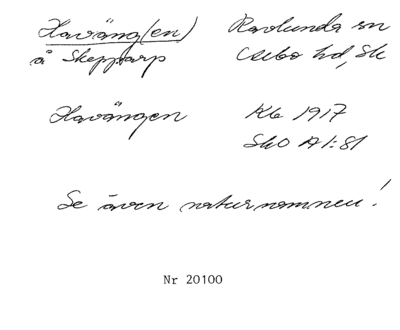 Haväng(en) Ravlunda sn
å Skepparp Albo hd, Sk
Havängen Kb 1917
SkO A1:81
Se även naturnamnen!
Nr 20100